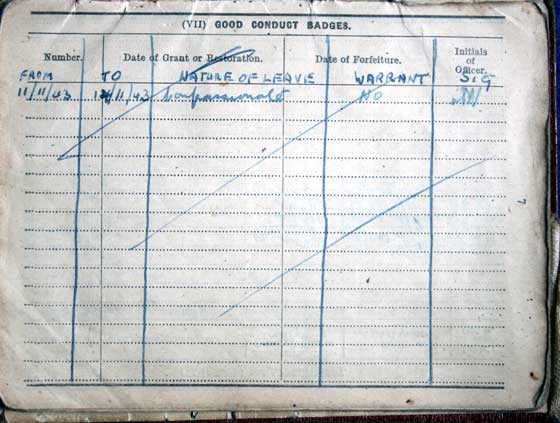 (VII) GOOD CONDUCT BADGES.
Number. Date of Grant or Restoration. Date of Forfeiture. Initials of Officer.
FROM TO NATURE OF LEAVE WARRANT SIG
11/11/43 /11/43 Compassionate NO
7